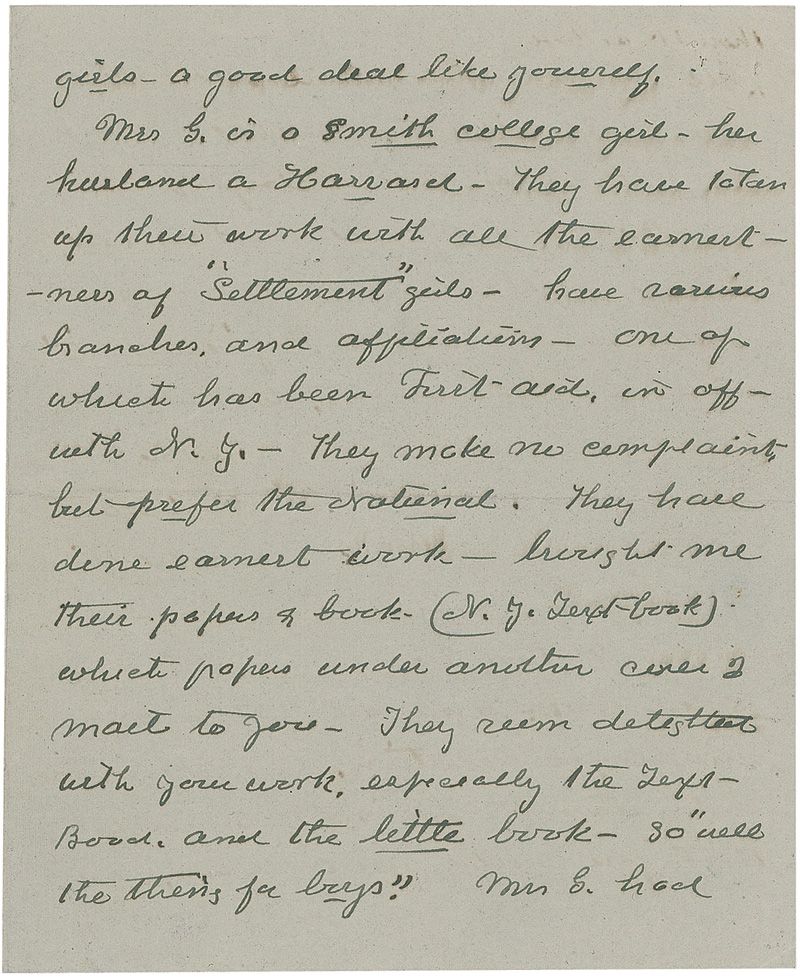 girls - a good deal like yourself.
Mrs G. is a Smith college girl - her
husband a Harvard - They have taken
up their work with all the earnest-
-ness of "Settlement" girls - have various
branches, and affiliations - one of
which has been First aid, in off-
with N. Y. - They make no complaint,
but prefer the National. They have
done earnest work - brought me
their papers & book - (N. Y. Text-book)
which papers under another cover I
mail to you - They seem delighted
with your work, especially the Text-
Book, and the little book - so "well
the thing for boys." Mrs G. had